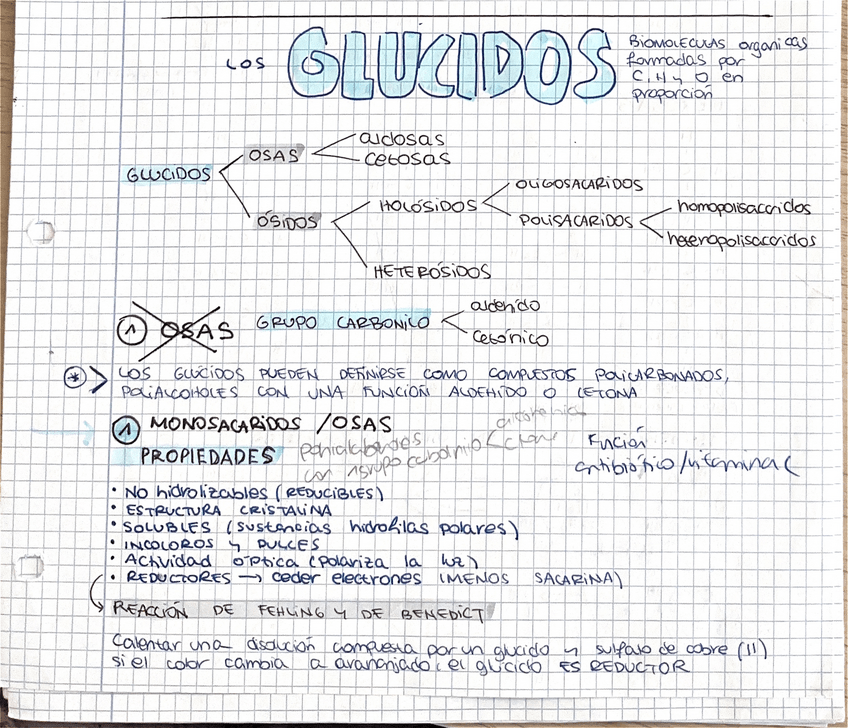 LOS GLÚCIDOS
BIOMOLECULAS organicas
formadas por
C, H y O en
proporción
GLUCIDOS
OSAS
aldosas
cetosas
ÓSIDOS
HOLÓSIDOS
OLIGOSACARIDOS
POLISACARIDOS
homopolisacaridos
heteropolisacaridos
HETERÓSIDOS
1 OSAS GRUPO CARBONILO
aldehido
cetónico
* > LOS GLÚCIDOS PUEDEN DEFINIRSE COMO COMPUESTOS POLICARBONADOS,
POLIALCOHOLES CON UNA FUNCIÓN ALDEHIDO O CETONA
1 MONOSACARIDOS / OSAS
PROPIEDADES
con 1 grupo
Función
antibiótico / vitamina C
• No hidrolizables (REDUCIBLES)
• ESTRUCTURA CRISTALINA
• SOLUBLES (sustancias hidrofilas polares)
• INCOLOROS y DULCES
• Actividad óptica (polariza la luz)
• REDUCTORES → ceder electrones (MENOS SACARINA)
REACCIÓN DE FEHLING Y DE BENEDICT
Calentar una disolución compuesta por un glucido y sulfato de cobre (II)
si el color cambia a anaranjado, el glúcido ES REDUCTOR